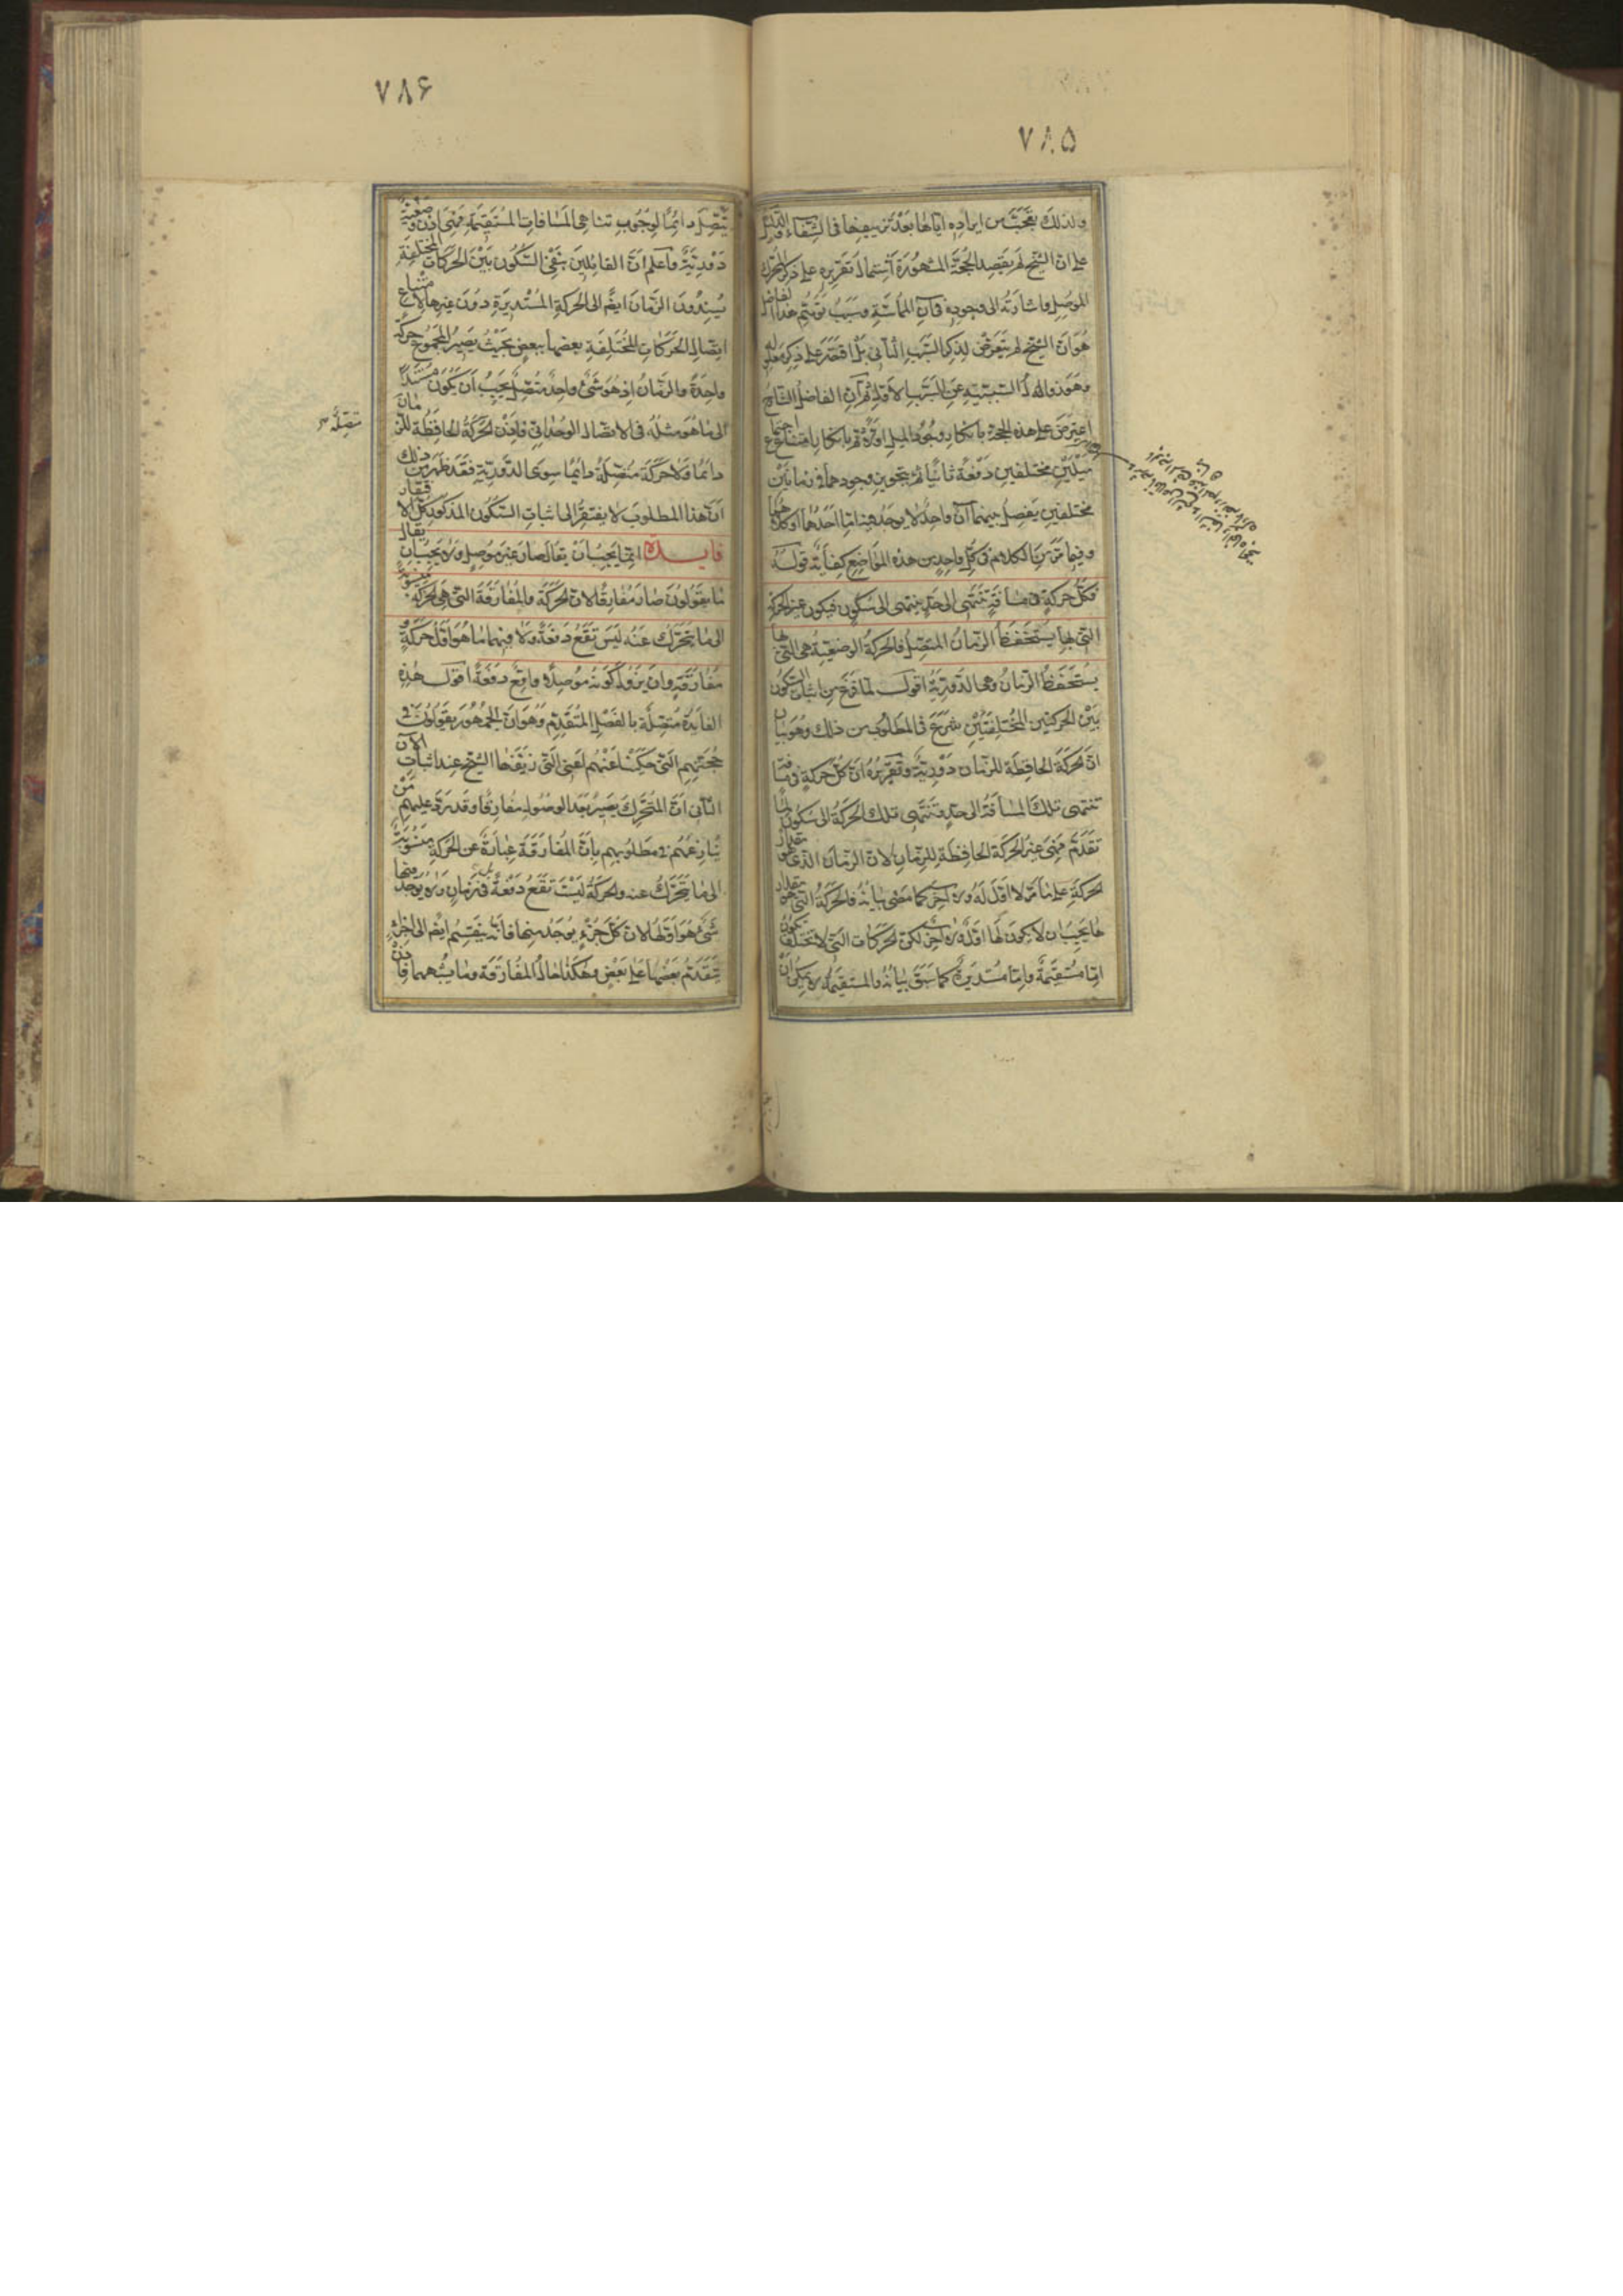 ٧٨٥
ولذلك تعجب من ايراده اياها بعد تزييفها فى الشفاء والدليل
على ان الشيخ لم يقصد الحجة المشهورة اشتمال تقريره على ذكر المحرك
الموصل واشارته الى وجوده فى آن المماسة وسبب توهم هذا الفاضل
هو ان الشيخ لم يتعرض لذكر السبب الثانى بل اقتصر على ذكر معلوله
وهو زوال السببية عن السبب الاول ثم ان الفاضل الشارح
اعترض على هذه الحجة بانكار وجود الميل اولا ثم بانكار امتناع اجتماع
ميلين مختلفين دفعة ثانيا ثم بتجويز وجودهما فى زمانين
مختلفين يفصل بينهما آن واحد لا يوجد فيه اما احدهما او كلاهما
وفيما مر من الكلام فى كل واحد من هذه المواضع كفاية قوله
فكل حركة فى مسافة تنتهى الى حد ينتهى الى سكون فيكون غير الحركة
التى بها يستحفظ الزمان المتصل فالحركة الوضعية هى التى بها
يستحفظ الزمان وهى الدورية اقول لما فرغ من اثبات السكون
بين الحركتين المختلفتين شرع فى المطلوب من ذلك وهو بيان
ان الحركة الحافظة للزمان دورية وتقريره ان كل حركة فى مسافة
تنتهى تلك المسافة الى حد فتنتهى تلك الحركة الى سكون لما
تقدم فهى غير الحركة الحافظة للزمان لان الزمان الذى هو مقدار
الحركة على ما مر لا اول له ولا آخر كما مضى بيانه فالحركة التى هو مقدارها
يجب ان لا يكون لها اول ولا آخر لكن الحركات التى لا تختلف تكون
اما مستقيمة واما مستديرة كما سبق بيانه والمستقيمة لا يمكن ان
٧٨۶
تتصل دايما لوجوب تناهى المسافات المستقيمة فهى اذن وضعية
دورية واعلم ان القائلين بنفى السكون بين الحركات المختلفة
يسندون الزمان ايضا الى الحركة المستديرة دون غيرها لامتناع
اتصال الحركات المختلفة بعضها ببعض بحيث يصير المجموع حركة
واحدة والزمان اذ هو شئ واحد متصل يجب ان يكون مستندا
الى ما هو مثله فى الاتصال الوحدانى فاذن الحركة الحافظة للزمان
متصلة
دائما ولا حركة متصلة دائما سوى الدورية فقد ظهر من ذلك
ان هذا المطلوب لا يفتقر الى اثبات السكون المذكور كل الافتقار
فايدة انما يجب ان يقال صار غير موصل ولا يجب ان يقال
ما يقولون صار مفارقا لان الحركة والمفارقة التى هى الحركة منسوبة
الى ما يتحرك عنه ليس تقع دفعة ولا فيهما ما هو اول حركة و
مفارقة وان يزول كونه موصلا واقع دفعة اقول هذه
الفايدة متصلة بالفصل المتقدم وهو ان الجمهور يقولون فى
حجتهم التى حكيناها عنهم اعنى التى زيفها الشيخ عند اثبات الآن
الثانى ان المتحرك يصير بعد الوصول مفارقا وقد يرد عليهم من
ينازعهم فى مطلوبهم بان المفارقة عبارة عن الحركة منسوبة
الى ما يتحرك عنه والحركة ليست تقع دفعة بل فى زمان ولا يوجد منها
شئ هو اولها لان كل جزء يوجد منها فانه ينقسم ايضا الى اجزاء
يتقدم بعضها على بعض وهكذا حال المفارقة وما يشبههما فاذن